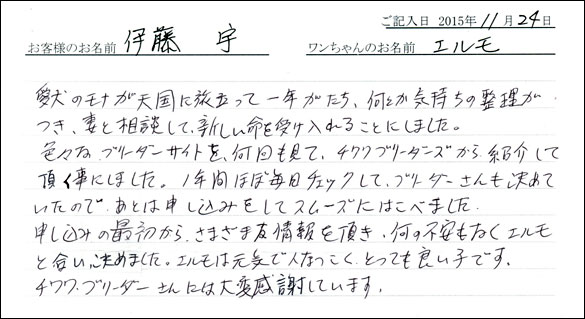 ご記入日 2015年11月24日
お客様のお名前 伊藤 宇 ワンちゃんのお名前 エルモ
愛犬のモナが天国に旅立って一年がたち、何とか気持ちの整理が
つき、妻と相談して、新しい命を受け入れることにしました。
色々なブリーダーサイトを、何回も見て、チワワブリーダーズから、紹介して
頂く事にしました。1年間ほぼ毎日チェックして、ブリーダーさんも決めて
いたので、あとは申し込みをしてスムーズにはこべました。
申し込みの最初から、さまざまな情報を頂き、何の不安もなくエルモ
と会い、決めました。エルモは元気で人なつっこく、とっても良い子です。
チワワ・ブリーダーさんには大変感謝しています。